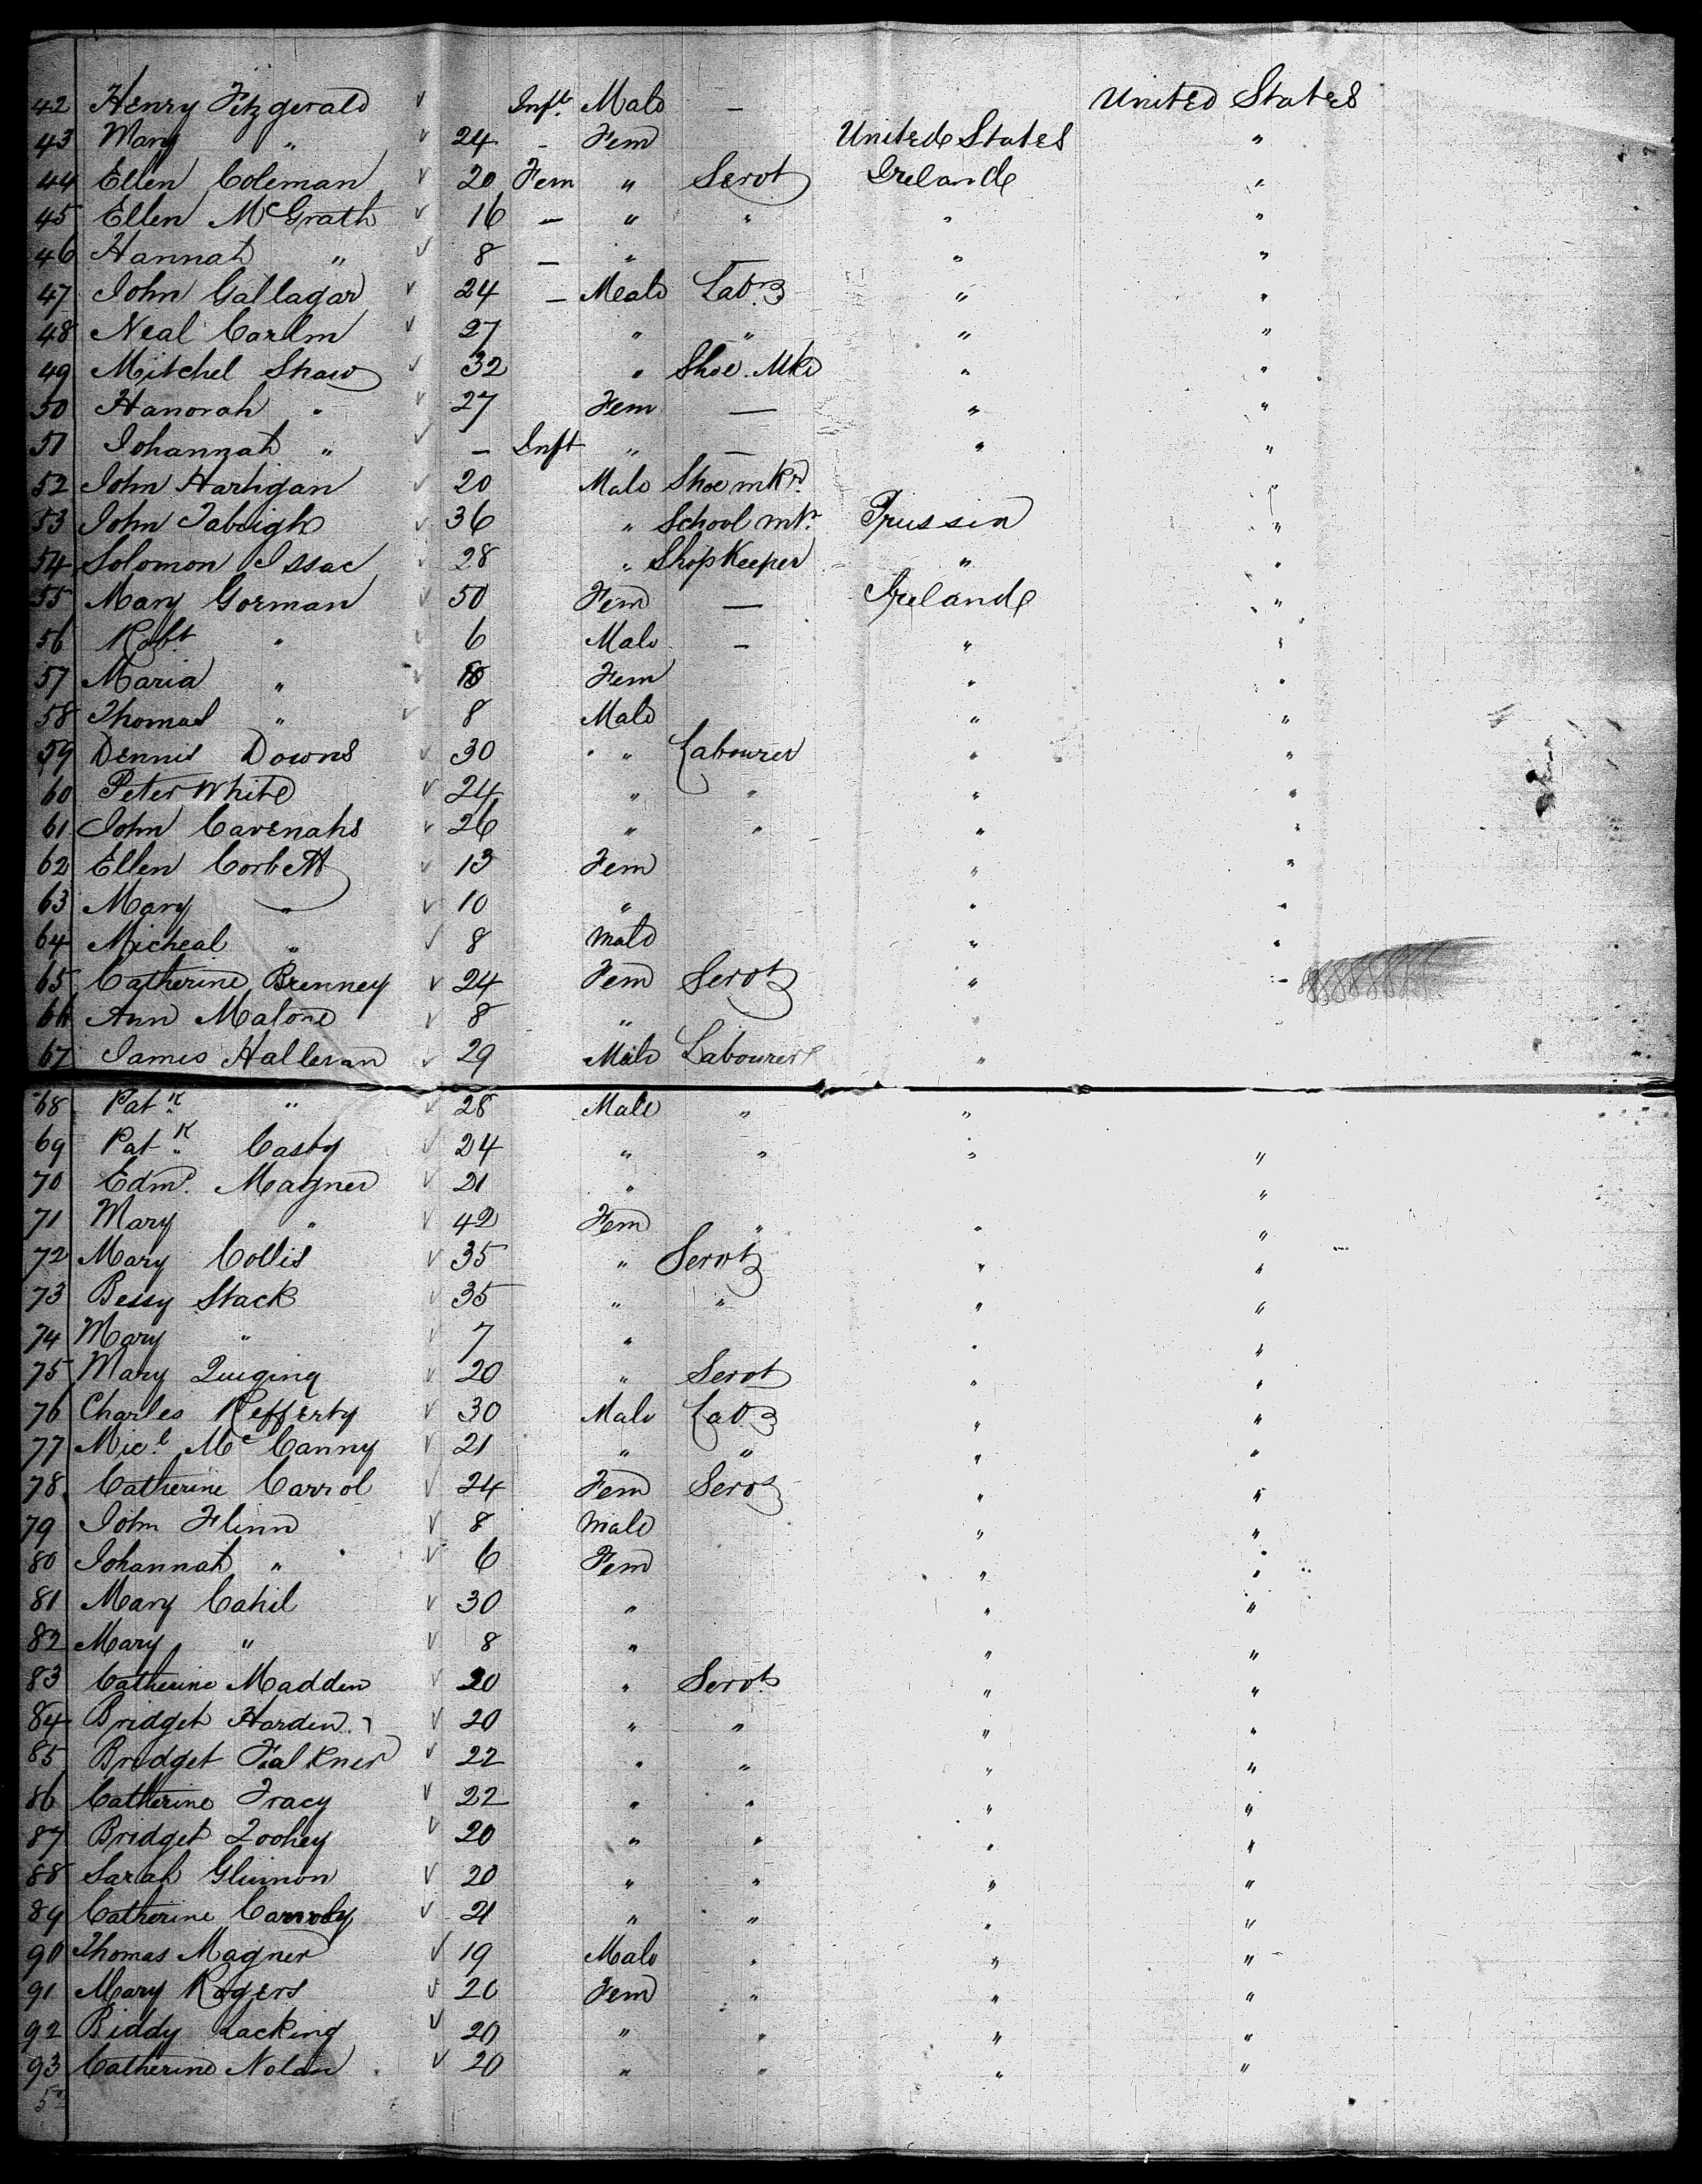 42 Henry Fitzgerald Inft. Male — United States
43 Mary " 24 - Fem United States "
44 Ellen Coleman 20 Fem " Servt Ireland "
45 Ellen McGrath 16 — " " " "
46 Hannah " 8 — " — " "
47 John Gallagar 24 — Male Labr " "
48 Neal 27 " " " "
49 Mitchel Shaw 32 " Shoe. Mkr " "
50 Hanorah " 27 Fem — " "
51 Johannah " — Inft " — " "
52 John Hartigan 20 Male Shoe mkr. " "
53 John 36 " School mtr. Prussia "
54 Solomon Issac 28 " Shop Keeper " "
55 Mary Gorman 50 Fem — Ireland "
56 Robt. " 6 Male — " "
57 Maria " Fem " "
58 Thomas " 8 Male " "
59 Dennis Downs 30 " Labourer " "
60 Peter White 24 " " " "
61 John Cavenahs 26 " " " "
62 Ellen Corbett 13 Fem " "
63 Mary " 10 " " "
64 Micheal " 8 Male " "
65 Catherine Brenney 24 Fem Servt " "
66 Ann Malone 8 " " "
67 James Halleran 29 Male Labourer "
68 Patk. " 28 Male " "
69 Patk. Casty 24 " " " "
70 Edmd. Magner 21 " "
71 Mary " 42 Fem " " "
72 Mary Collis 35 " Servt " "
73 Bessy Stack 35 " " " "
74 Mary " 7 " " "
75 Mary 20 " Servt " "
76 Charles Refferty 30 Male Labr " "
77 Micl. McCanny 21 " " " "
78 Catherine Carrol 24 Fem Servt " "
79 John Flinn 8 Male " "
80 Johannah " 6 Fem " "
81 Mary Cahil 30 " " "
82 Mary " 8 " " "
83 Catherine Madden 20 " Servt. " "
84 Bridget Harden 20 " " " "
85 Bridget Falkner 22 " " " "
86 Catherine Tracy 22 " " " "
87 Bridget Toohey 20 " " " "
88 Sarah 20 " " " "
89 Catherine 21 " " " "
90 Thomas Magner 19 Male " " "
91 Mary Rogers 20 Fem " " "
92 Biddy Lacking 20 " " " "
93 Catherine Nolan 20 " " " "